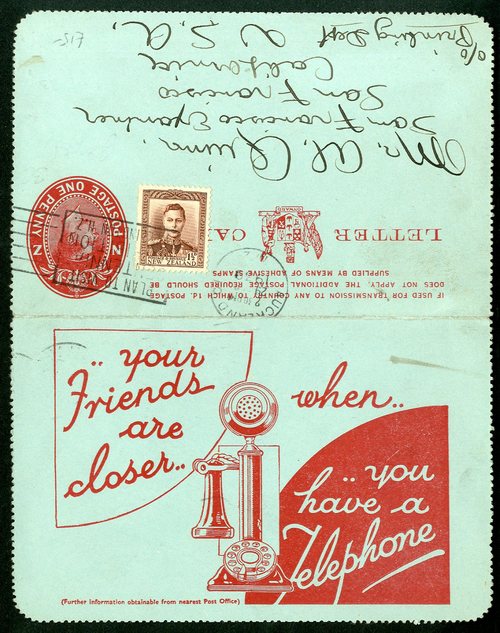 Mr. Al. Quinn.
San Francisco Examiner
San Francisco
California
U. S. A.
c/o
Printing Dept
£15-
LETTER CA
POSTAGE ONE PENNY
N Z
1½D
NEW ZEALAND
AUCKLAND
IF USED FOR TRANSMISSION TO ANY COUNTRY TO WHICH 1d. POSTAGE
DOES NOT APPLY, THE ADDITIONAL POSTAGE REQUIRED SHOULD BE
SUPPLIED BY MEANS OF ADHESIVE STAMPS
.. your
Friends
are
closer..
when..
.. you
have a
Telephone
(Further information obtainable from nearest Post Office)